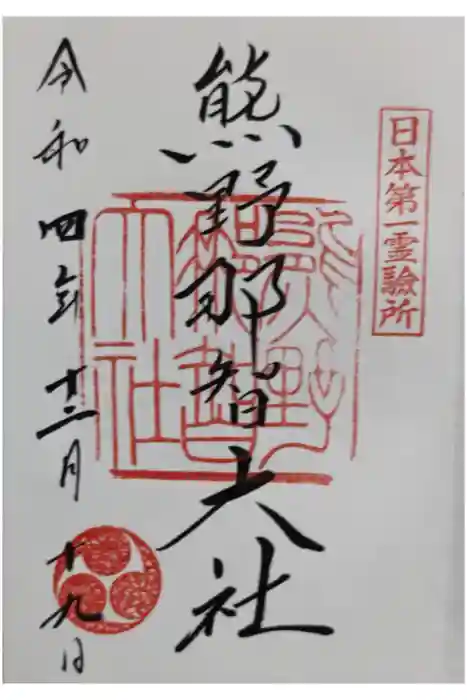 日本第一霊驗所
熊野那智大社
熊野
那智
大社
令和四年十二月十九日